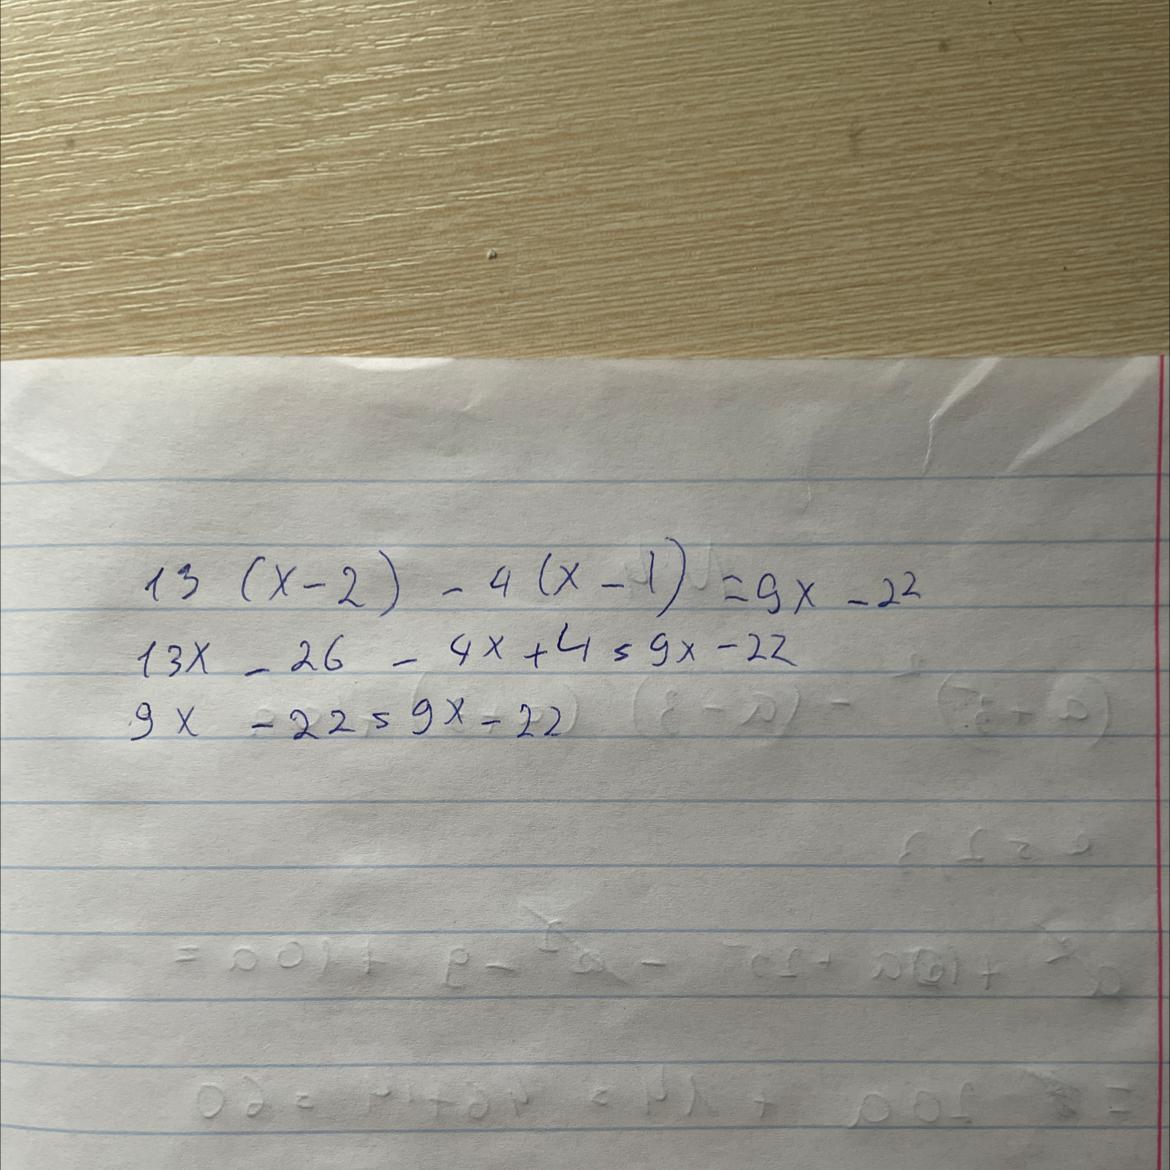 13 (x-2) - 4 (x-1) = 9x - 22
13x - 26 - 4x + 4 = 9x - 22
9x - 22 = 9x - 22